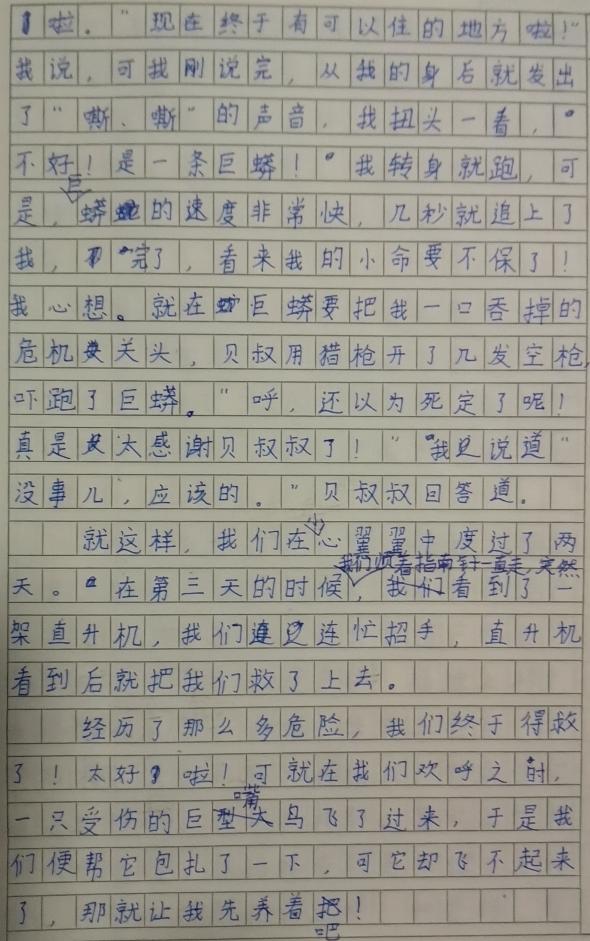 啦。“现在终于有可以住的地方啦！”
我说，可我刚说完，从我的身后就发出
了“嘶、嘶”的声音，我扭头一看，“
不好！是一条巨蟒！”我转身就跑，可
是，巨蟒的速度非常快，几秒就追上了
我，“完了，看来我的小命要不保了！
我心想。就在巨蟒要把我一口吞掉的
危机关头，贝叔用猎枪开了几发空枪，
吓跑了巨蟒。“呼，还以为死定了呢！
真是太感谢贝叔叔了！”“我说道“
没事儿，应该的。”贝叔叔回答道。
就这样，我们在小心翼翼中度过了两
天。在第三天的时候，我们顺着指南针一直走，突然看到了一
架直升机，我们连忙招手，直升机
看到后就把我们救了上去。
经历了那么多危险，我们终于得救
了！太好啦！可就在我们欢呼之时，
一只受伤的巨嘴鸟飞了过来，于是我
们便帮它包扎了一下，可它却飞不起来
了，那就让我先养着吧！